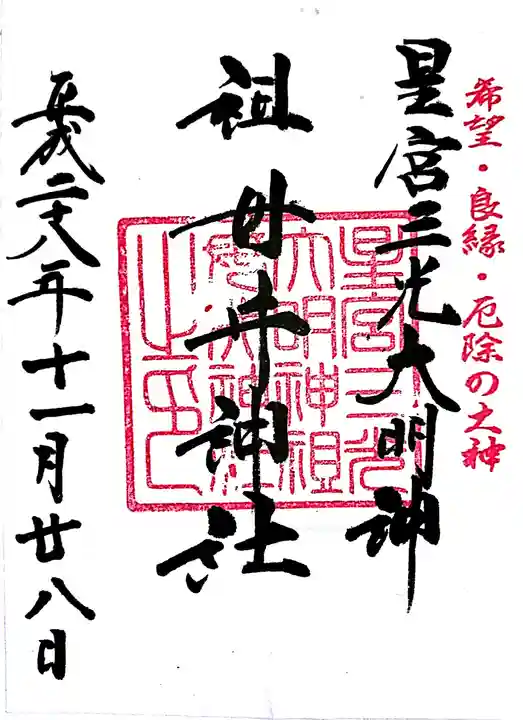 希望・良縁・厄除の大神
星宮三光大明神
祖母井神社
平成二十八年十一月廿八日
星宮三光
大明神祖
母井神社
之印